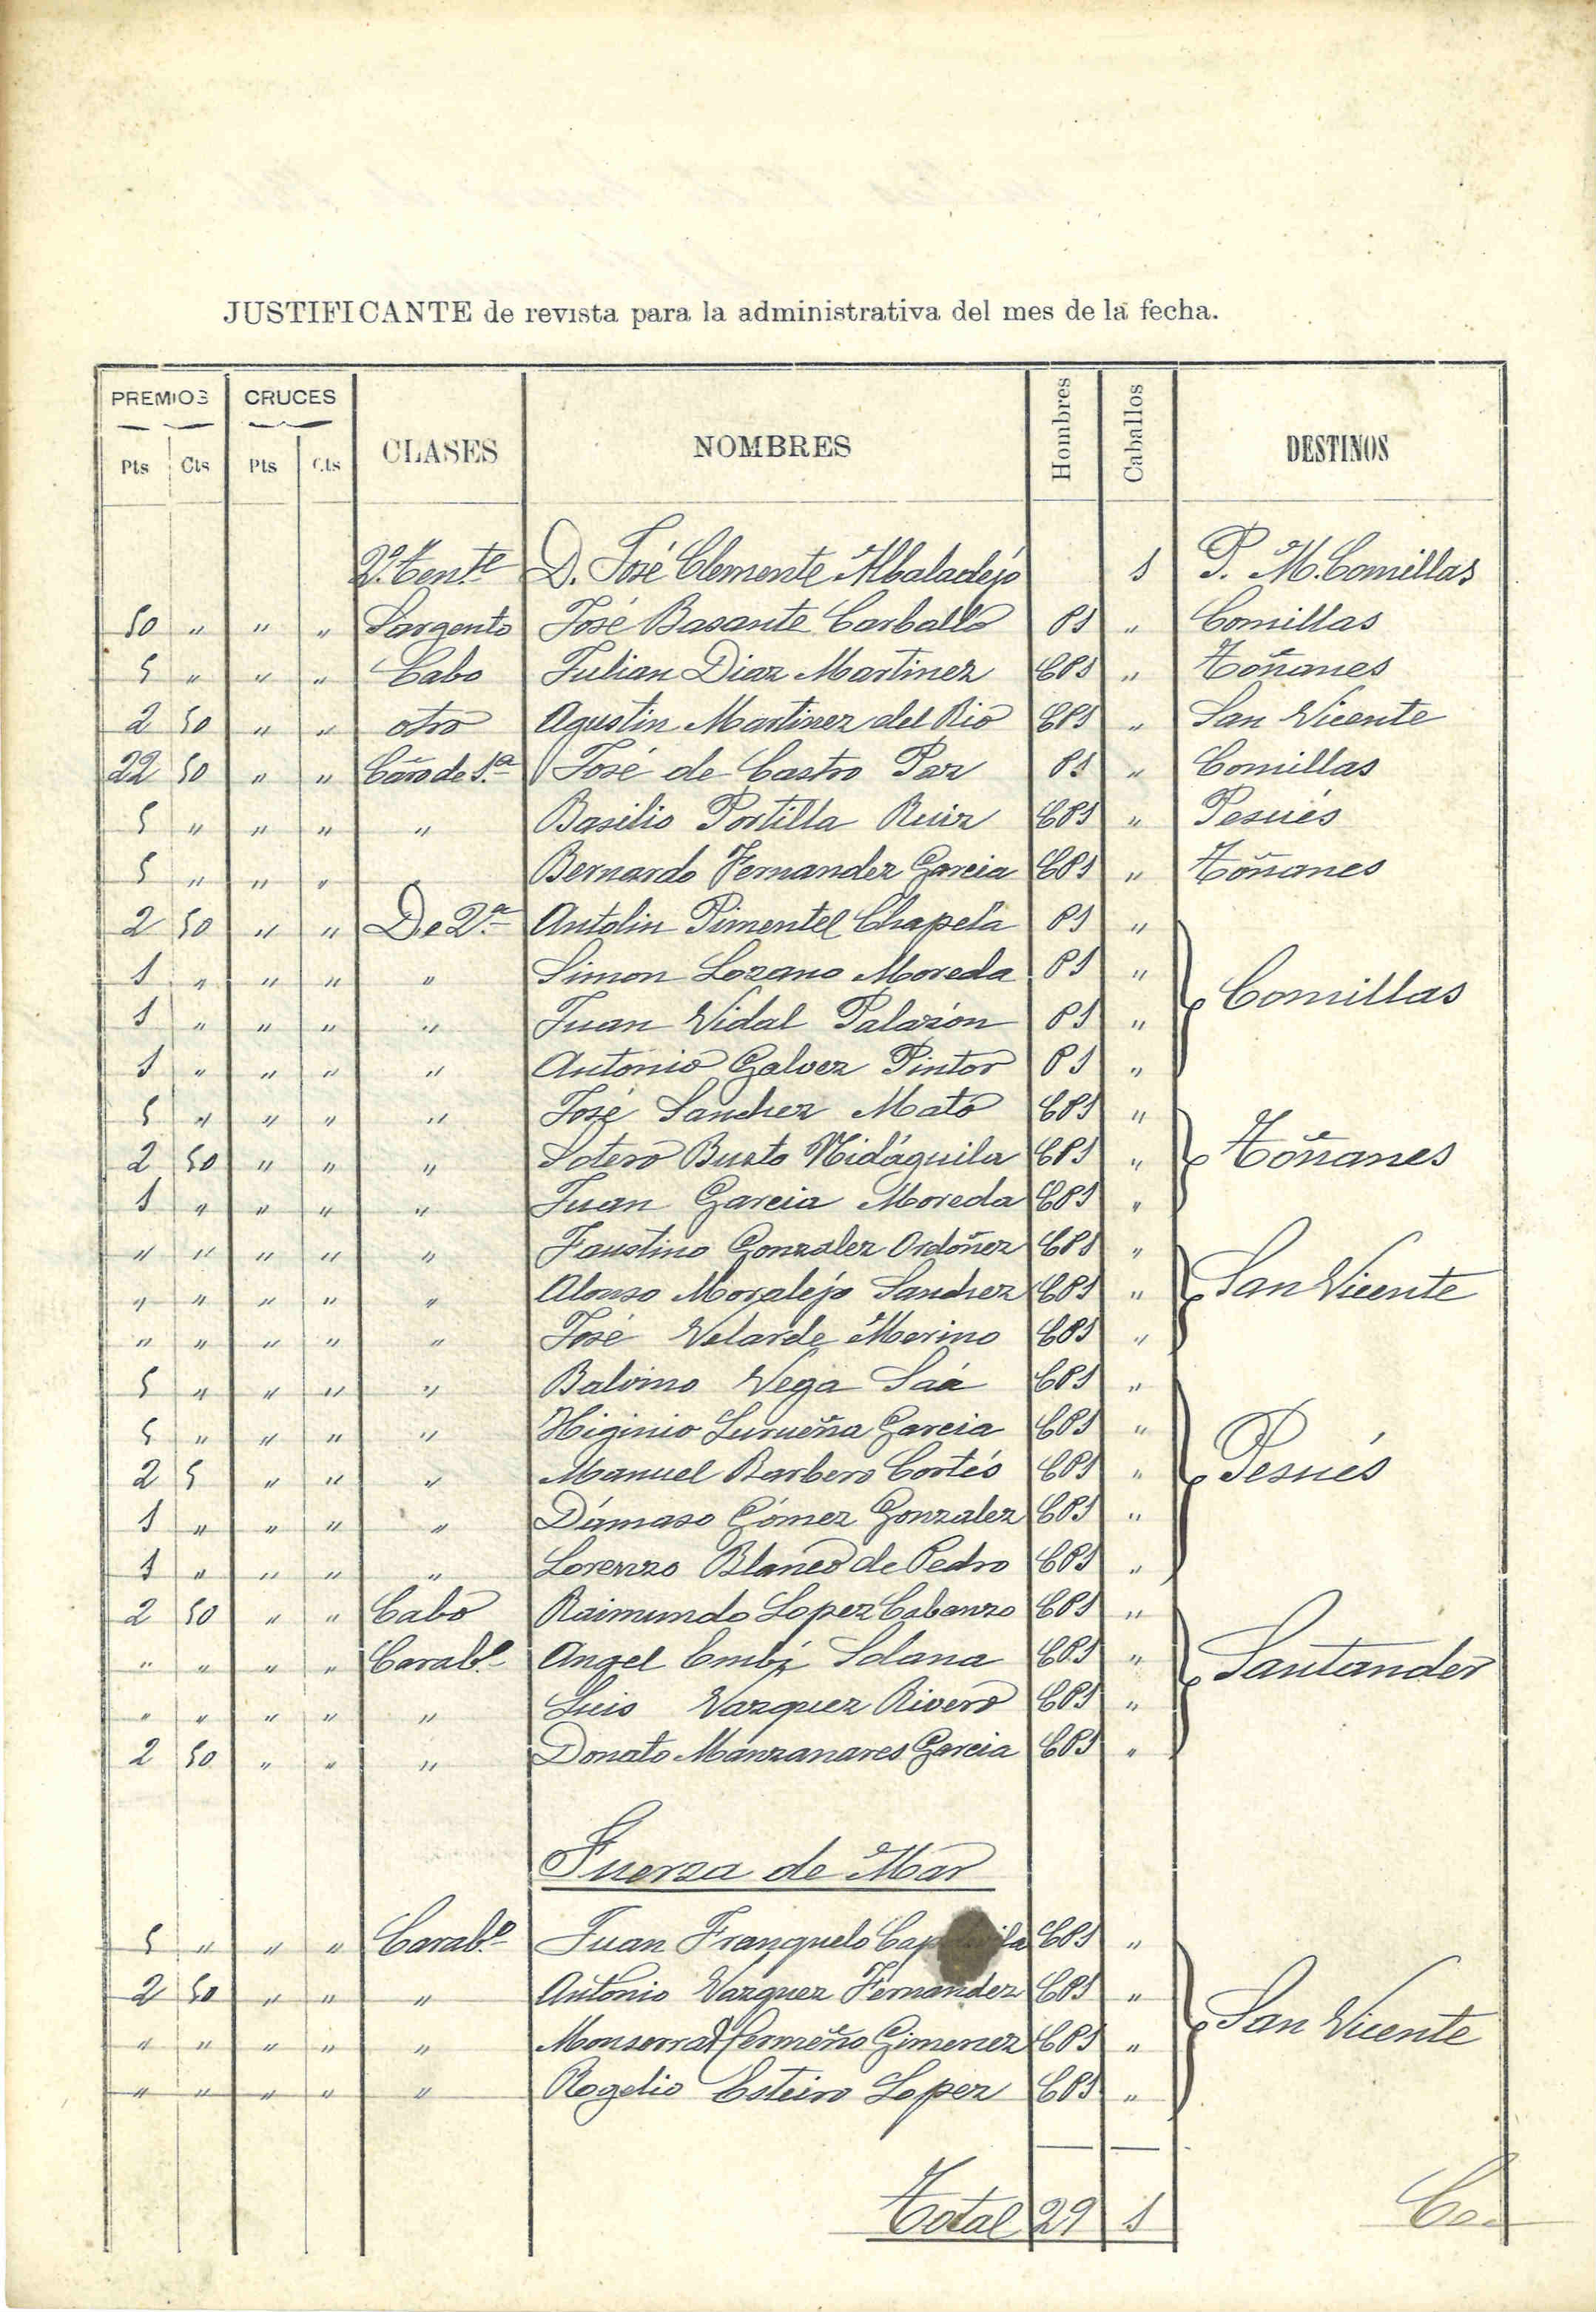 JUSTIFICANTE de revista para la administrativa del mes de la fecha.
PREMIOS CRUCES CLASES NOMBRES Hombres Caballos DESTINOS
Pts Cts Pts Cts
2º Tente D. José Clemente Albaladéjo 1 P. M. Comillas
50 " " " Sargento José Basante Carballo P1 " Comillas
5 " " " Cabo Julian Diaz Martinez CP1 " Toñanes
2 50 " " otro Agustin Martinez del Rio CP1 " San Vicente
22 50 " " Caro de 1ª José de Castro Paz P1 " Comillas
5 " " " " Basilio Portilla Ruiz CP1 " Pesués
5 " " " " Bernardo Fernandez Garcia CP1 " Toñanes
2 50 " " De 2ª Antolin Pimentel Chapela P1 "
1 " " " " Simon Lozano Moreda P1 " Comillas
1 " " " " Juan Vidal Palazón P1 "
1 " " " " Antonio Galvez Pintor P1 "
5 " " " " José Sanchez Mato CP1 "
2 50 " " " Sotero Busto Midáguila CP1 " Toñanes
1 " " " " Juan Garcia Moreda CP1 "
" " " " " Faustino Gonzalez Ordóñez CP1 "
" " " " " Alonso Moralejo Sanchez CP1 " San Vicente
" " " " " José Velarde Merino CP1 "
5 " " " " Balvino Vega Sáa CP1 "
5 " " " " Higinio Lurueña Garcia CP1 "
2 5 " " " Manuel Barbero Cortés CP1 " Pesués
1 " " " " Dámaso Gómez Gonzalez CP1 "
1 " " " " Lorenzo Blanco de Pedro CP1 "
2 50 " " Cabo Raimundo Lopez Cabanzo CP1 "
" " " " Carabº Angel Embíz Solana CP1 " Santander
" " " " " Luis Vazquez Rivero CP1 "
2 50 " " " Donato Manzanares Garcia CP1 "
Fuerza de Mar
5 " " " Carabº Juan Franquelo CP1 "
2 50 " " " Antonio Vazquez Fernandez CP1 "
" " " " " Monserrat Cermeño Gimenez CP1 " San Vicente
" " " " " Rogelio Esteiro Lopez CP1 "
Total 29 1